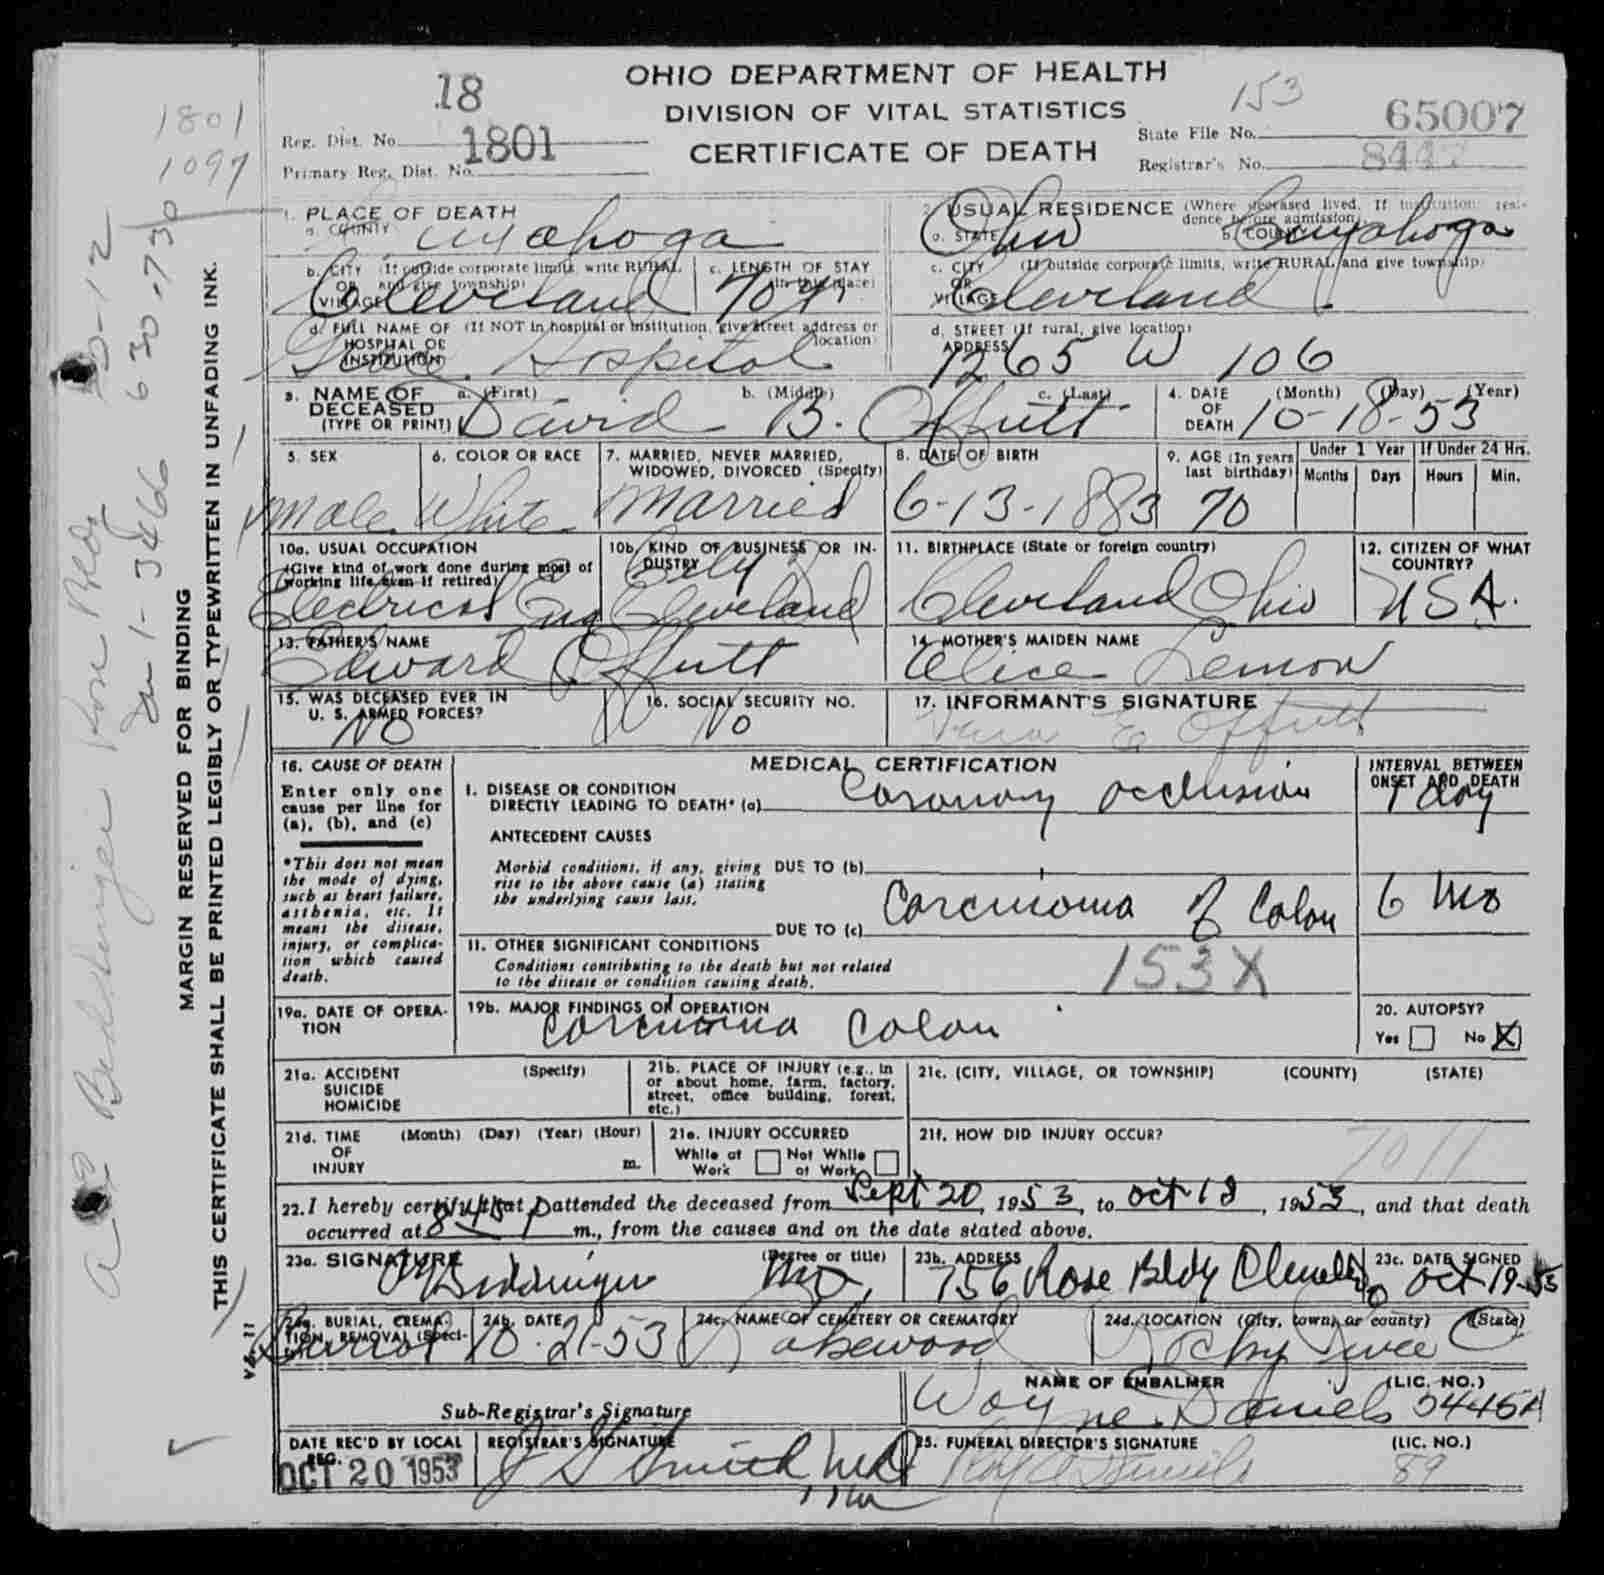 OHIO DEPARTMENT OF HEALTH
DIVISION OF VITAL STATISTICS
CERTIFICATE OF DEATH
Reg. Dist. No. 18
Primary Reg. Dist. No. 1801
153
State File No. 65007
Registrar's No. 8447
1801
1097
1. PLACE OF DEATH
a. COUNTY Cuyahoga
2. USUAL RESIDENCE (Where deceased lived. If institution: residence before admission).
a. STATE Ohio b. COUNTY Cuyahoga
b. CITY (If outside corporate limits, write RURAL and give township) OR VILLAGE Cleveland
c. LENGTH OF STAY (in this place) 70 y.
c. CITY (If outside corporate limits, write RURAL and give township) OR VILLAGE Cleveland
d. FULL NAME OF (If NOT in hospital or institution, give street address or location) HOSPITAL OR INSTITUTION Grace Hospital
d. STREET (If rural, give location) ADDRESS 1265 W 106
3. NAME OF DECEASED (TYPE OR PRINT) a. (First) David b. (Middle) B. c. (Last) Offutt
4. DATE OF DEATH (Month) (Day) (Year) 10-18-53
5. SEX Male
6. COLOR OR RACE White
7. MARRIED, NEVER MARRIED, WIDOWED, DIVORCED (Specify) Married
8. DATE OF BIRTH 6-13-1883
9. AGE (In years last birthday) 70
Under 1 Year Months Days
If Under 24 Hrs. Hours Min.
10a. USUAL OCCUPATION (Give kind of work done during most of working life, even if retired) Electrical Eng
10b. KIND OF BUSINESS OR INDUSTRY City Cleveland
11. BIRTHPLACE (State or foreign country) Cleveland Ohio
12. CITIZEN OF WHAT COUNTRY? USA.
13. FATHER'S NAME Edward Offutt
14. MOTHER'S MAIDEN NAME Alice Lemon
15. WAS DECEASED EVER IN U. S. ARMED FORCES? No
16. SOCIAL SECURITY NO. No
17. INFORMANT'S SIGNATURE E Offutt
18. CAUSE OF DEATH
Enter only one cause per line for (a), (b), and (c)
*This does not mean the mode of dying, such as heart failure, asthenia, etc. It means the disease, injury, or complication which caused death.
MEDICAL CERTIFICATION
INTERVAL BETWEEN ONSET AND DEATH
I. DISEASE OR CONDITION DIRECTLY LEADING TO DEATH* (a) Coronary occlusion 1 day
ANTECEDENT CAUSES
Morbid conditions, if any, giving rise to the above cause (a) stating the underlying cause last.
DUE TO (b)
DUE TO (c) Carcinoma of Colon 6 mo
II. OTHER SIGNIFICANT CONDITIONS
Conditions contributing to the death but not related to the disease or condition causing death.
153X
19a. DATE OF OPERATION
19b. MAJOR FINDINGS OF OPERATION Carcinoma Colon
20. AUTOPSY? Yes No X
21a. ACCIDENT SUICIDE HOMICIDE (Specify)
21b. PLACE OF INJURY (e.g., in or about home, farm, factory, street, office building, forest, etc.)
21c. (CITY, VILLAGE, OR TOWNSHIP) (COUNTY) (STATE)
21d. TIME OF INJURY (Month) (Day) (Year) (Hour) m.
21e. INJURY OCCURRED While at Work Not While at Work
21f. HOW DID INJURY OCCUR?
22. I hereby certify that I attended the deceased from Sept 20, 1953, to Oct 18, 1953, and that death
occurred at 8:45 P m., from the causes and on the date stated above.
23a. SIGNATURE (Degree or title) MD,
23b. ADDRESS 756 Rose Bldg Cleveland
23c. DATE SIGNED Oct 19-53
24a. BURIAL, CREMATION, REMOVAL (Specify) Burial
24b. DATE 10-21-53
24c. NAME OF CEMETERY OR CREMATORY Lakewood
24d. LOCATION (City, town, or county) (State) Rocky River O
Sub-Registrar's Signature
NAME OF EMBALMER (LIC. NO.)
Wayne Daniels 5445A
DATE REC'D BY LOCAL REG. OCT 20 1953
REGISTRAR'S SIGNATURE
25. FUNERAL DIRECTOR'S SIGNATURE (LIC. NO.)
Daniels 89
MARGIN RESERVED FOR BINDING
THIS CERTIFICATE SHALL BE PRINTED LEGIBLY OR TYPEWRITTEN IN UNFADING INK.
Rose Bldg